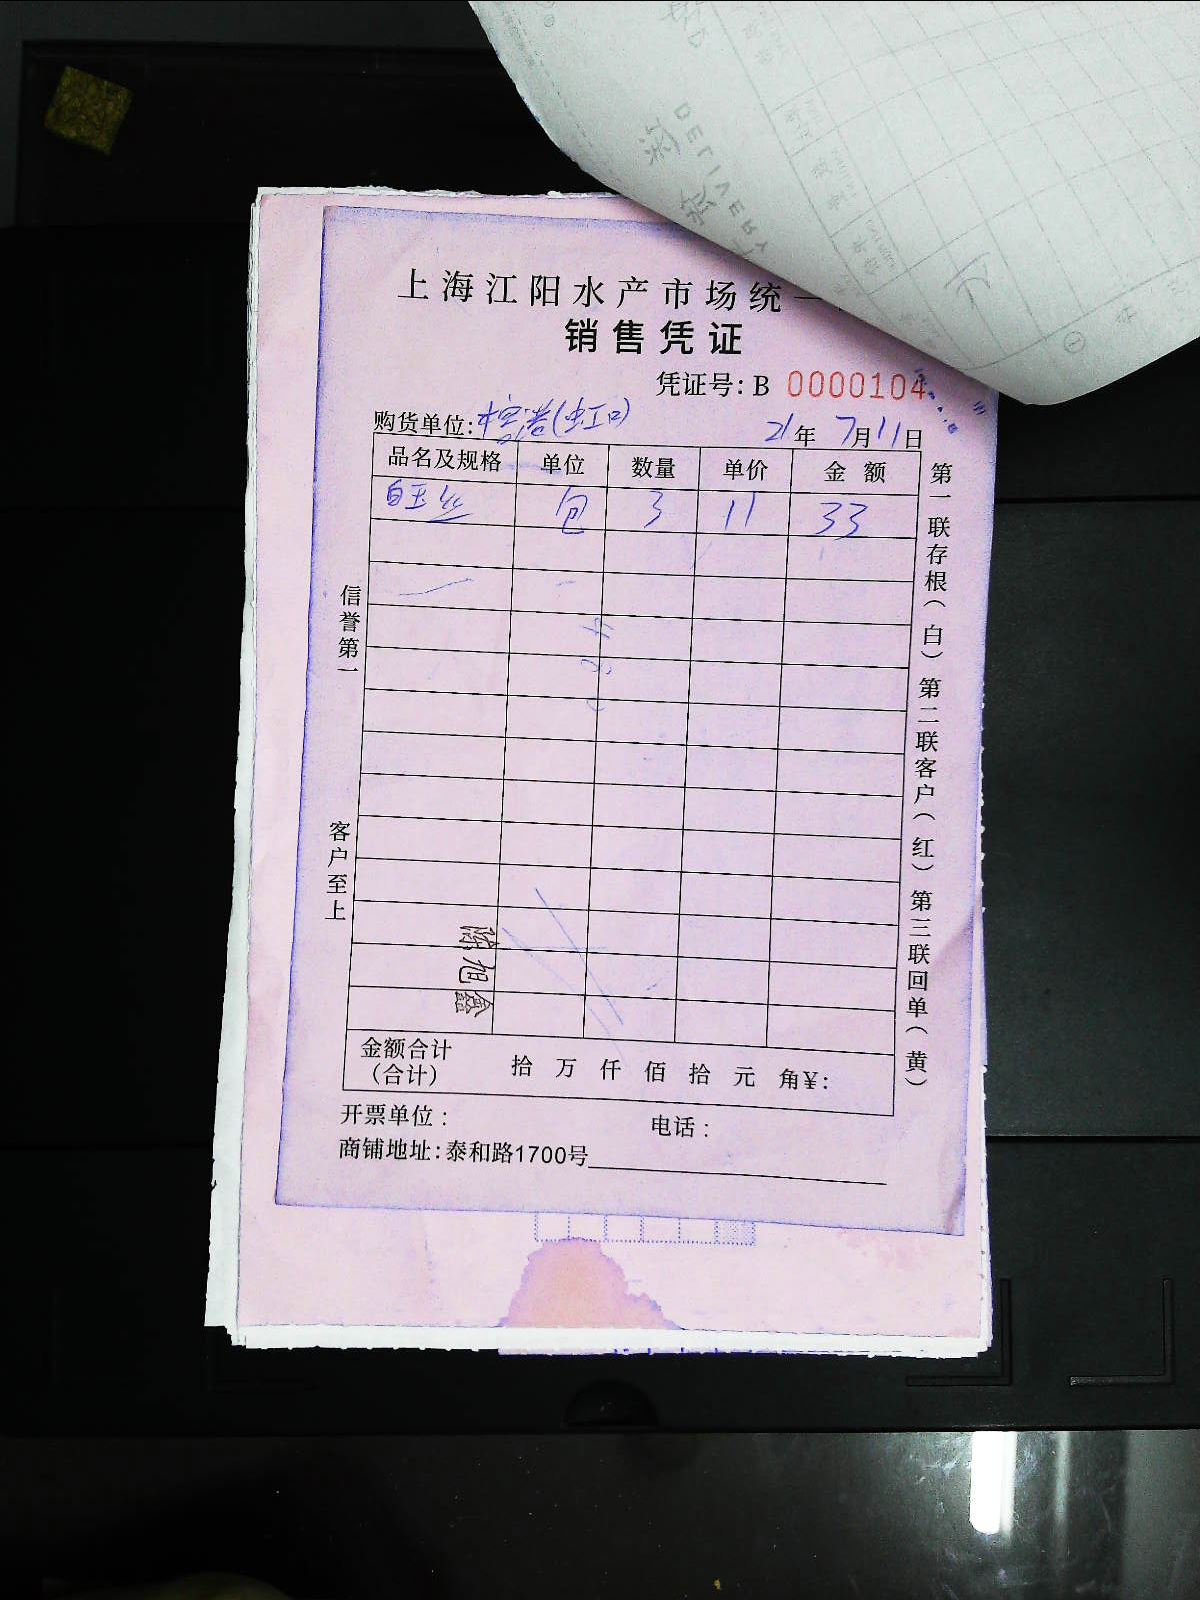 上海江阳水产市场统一
销售凭证
凭证号：B 0000104
购货单位：檀港(虹口) 21年 7月11日
品名及规格 单位 数量 单价 金额
白玉丝 包 3 11 33
信誉第一
客户至上
第一联存根（白）第二联客户（红）第三联回单（黄）
陈旭鑫
金额合计
（合计） 拾 万 仟 佰 拾 元 角¥：
开票单位： 电话：
商铺地址：泰和路1700号
DELIVERY